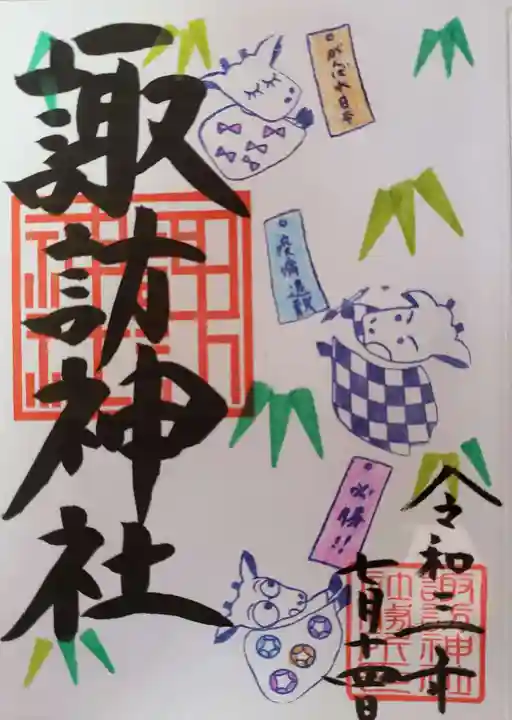 諏訪神社
がんばれ日本
疫病退散
必勝!!
令和三年
七月十四日
諏訪神社